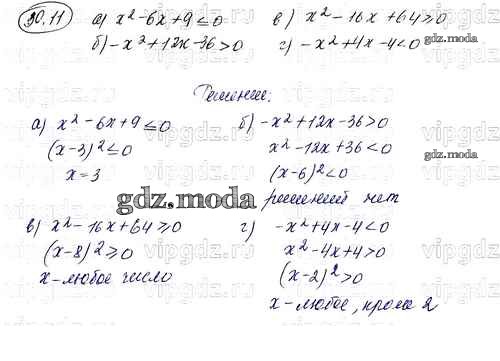 30.11
а) x² - 6x + 9 ≤ 0
б) -x² + 12x - 36 > 0
в) x² - 16x + 64 ≥ 0
г) -x² + 4x - 4 < 0
Решение:
а) x² - 6x + 9 ≤ 0
(x-3)² ≤ 0
x = 3
б) -x² + 12x - 36 > 0
x² - 12x + 36 < 0
(x-6)² < 0
решений нет
gdz.moda
в) x² - 16x + 64 ≥ 0
(x-8)² ≥ 0
x - любое число
г) -x² + 4x - 4 < 0
x² - 4x + 4 > 0
(x-2)² > 0
x - любое, кроме 2
vipgdz.ru